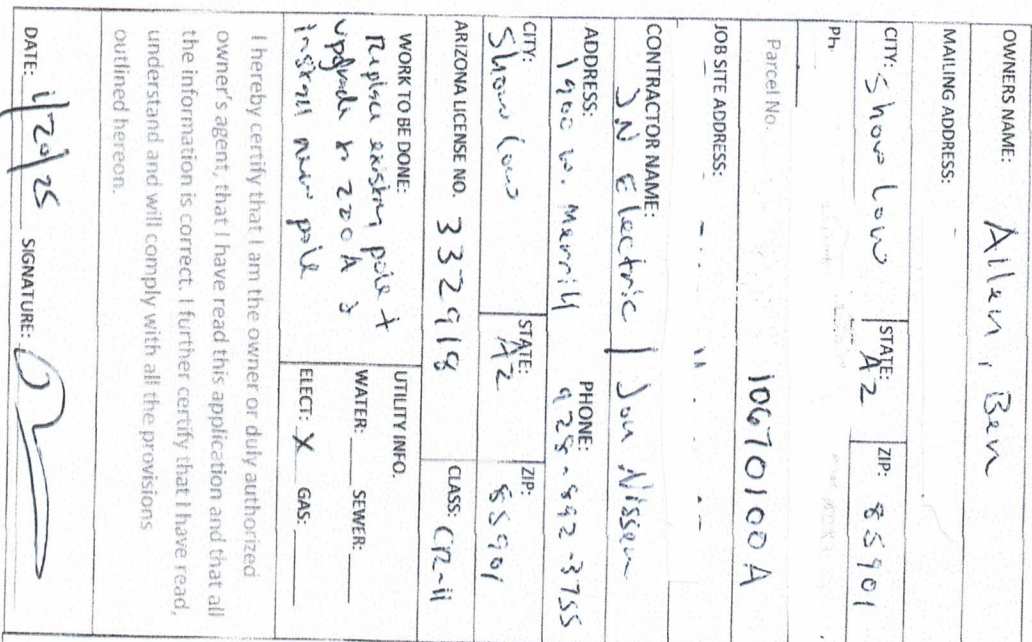 OWNERS NAME: Allen, Ben
MAILING ADDRESS:
CITY: Show Low STATE: AZ ZIP: 85901
Ph:
Parcel No. 10670100A
JOB SITE ADDRESS:
CONTRACTOR NAME:
JN Electric / Jon Nissen
ADDRESS: PHONE:
1900 W. Merrill 928-892-3755
CITY: STATE: ZIP:
Show Low AZ 85901
ARIZONA LICENSE NO. 332918 CLASS: CR-11
WORK TO BE DONE:
Replace existing pole +
upgrade to 220 A
install new pole
UTILITY INFO.
WATER: SEWER:
ELECT: X GAS:
I hereby certify that I am the owner or duly authorized
owner's agent, that I have read this application and that all
the information is correct. I further certify that I have read,
understand and will comply with all the provisions
outlined hereon.
DATE: 1/20/25 SIGNATURE: